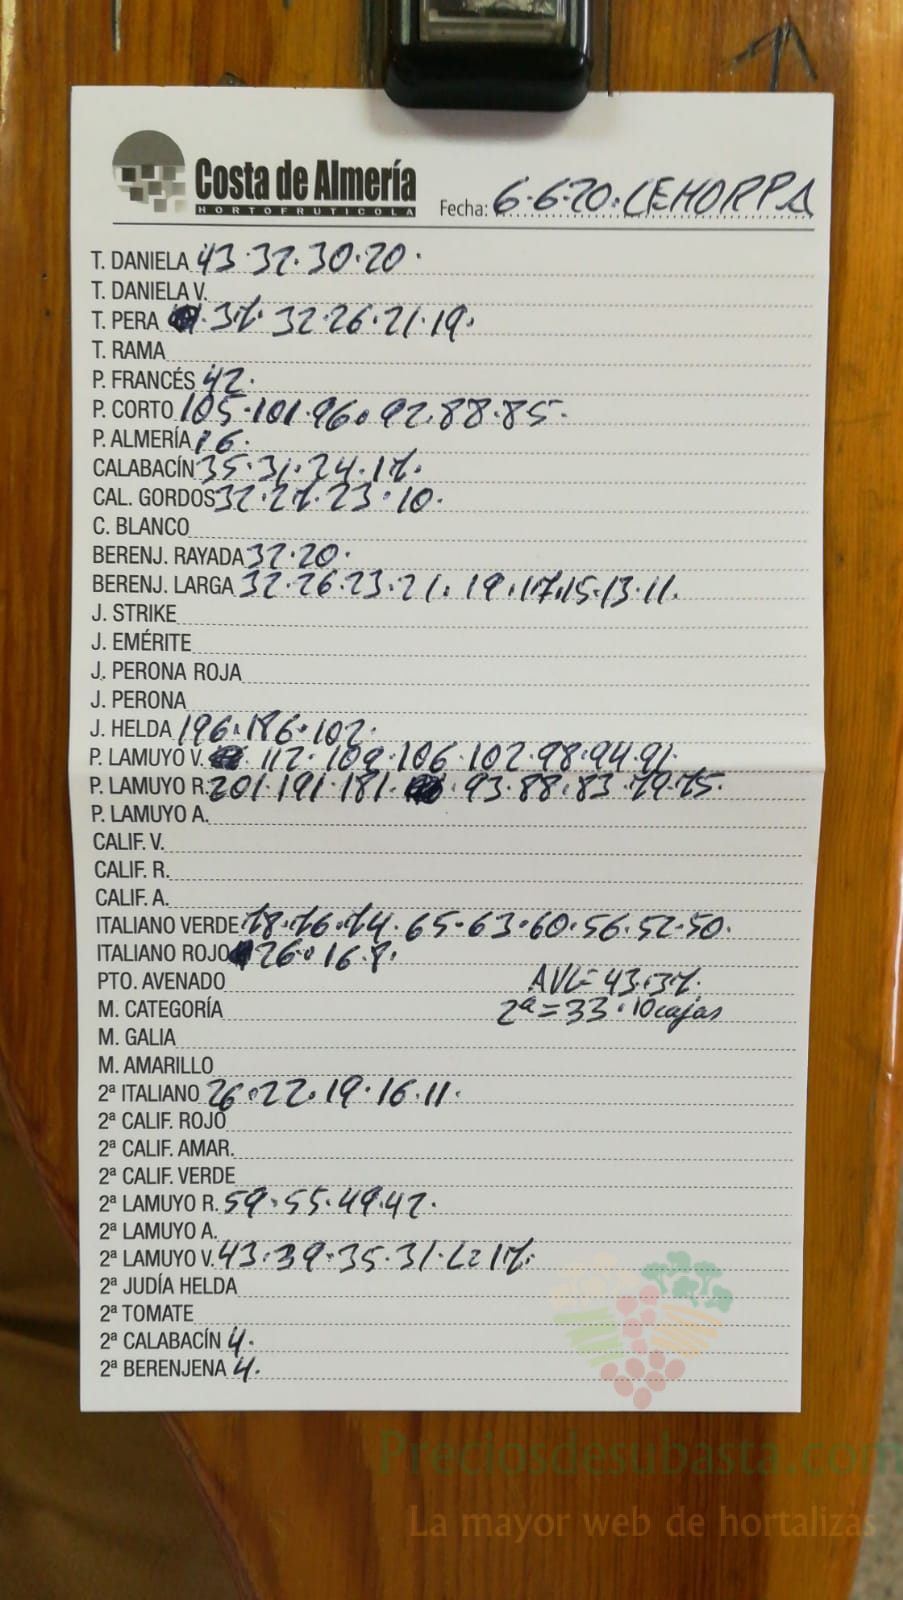 Costa de Almería
HORTOFRUTICOLA
Fecha: 6-6-20. CEHORPA
T. DANIELA 43.32.30.20.
T. DANIELA V.
T. PERA 37. 32.26.21.19.
T. RAMA
P. FRANCÉS 42.
P. CORTO 105.101.96.92.88.85.
P. ALMERÍA 16.
CALABACÍN 35.31.24.17.
CAL. GORDOS 32.27.23.10.
C. BLANCO
BERENJ. RAYADA 32.20.
BERENJ. LARGA 32.26.23.21. 19.17.15.13.11.
J. STRIKE
J. EMÉRITE
J. PERONA ROJA
J. PERONA
J. HELDA 196.186.102.
P. LAMUYO V. 112.109.106.102.98.94.91.
P. LAMUYO R. 201.191.181. 93.88.83.79.75.
P. LAMUYO A.
CALIF. V.
CALIF. R.
CALIF. A.
ITALIANO VERDE 78.76.74.65.63.60.56.52.50.
ITALIANO ROJO 126.
PTO. AVENADO AVL= 43.37.
M. CATEGORÍA 2ª=33.10cajas
M. GALIA
M. AMARILLO
2ª ITALIANO 26.22.19.16.11.
2ª CALIF. ROJO
2ª CALIF. AMAR.
2ª CALIF. VERDE
2ª LAMUYO R. 59.55.49.42.
2ª LAMUYO A.
2ª LAMUYO V. 43.39.35.31. 17.
2ª JUDÍA HELDA
2ª TOMATE
2ª CALABACÍN 4.
2ª BERENJENA 4.
Preciosdesubasta.com
La mayor web de hortalizas